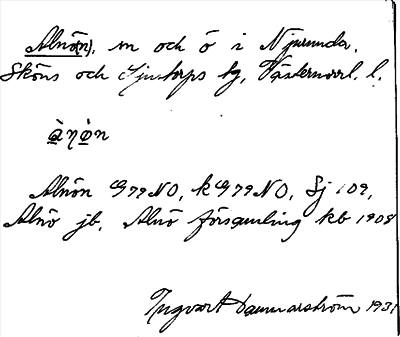 Alnö(n), sn och ö i Njurunda,
Sköns och Ljustorps tg, Västernorrl. l.
àηø̀n
Alnön G79NO, kG79NO, Sj 109,
Alnö jb, Alnö församling kb 1908
Ingvart Dammarström 1931